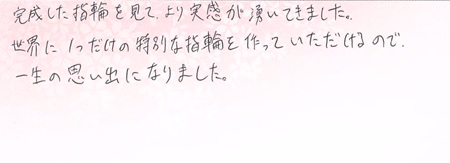 完成した指輪を見て、より実感が湧いてきました。
世界に1つだけの特別な指輪を作っていただけるので、
一生の思い出になりました。